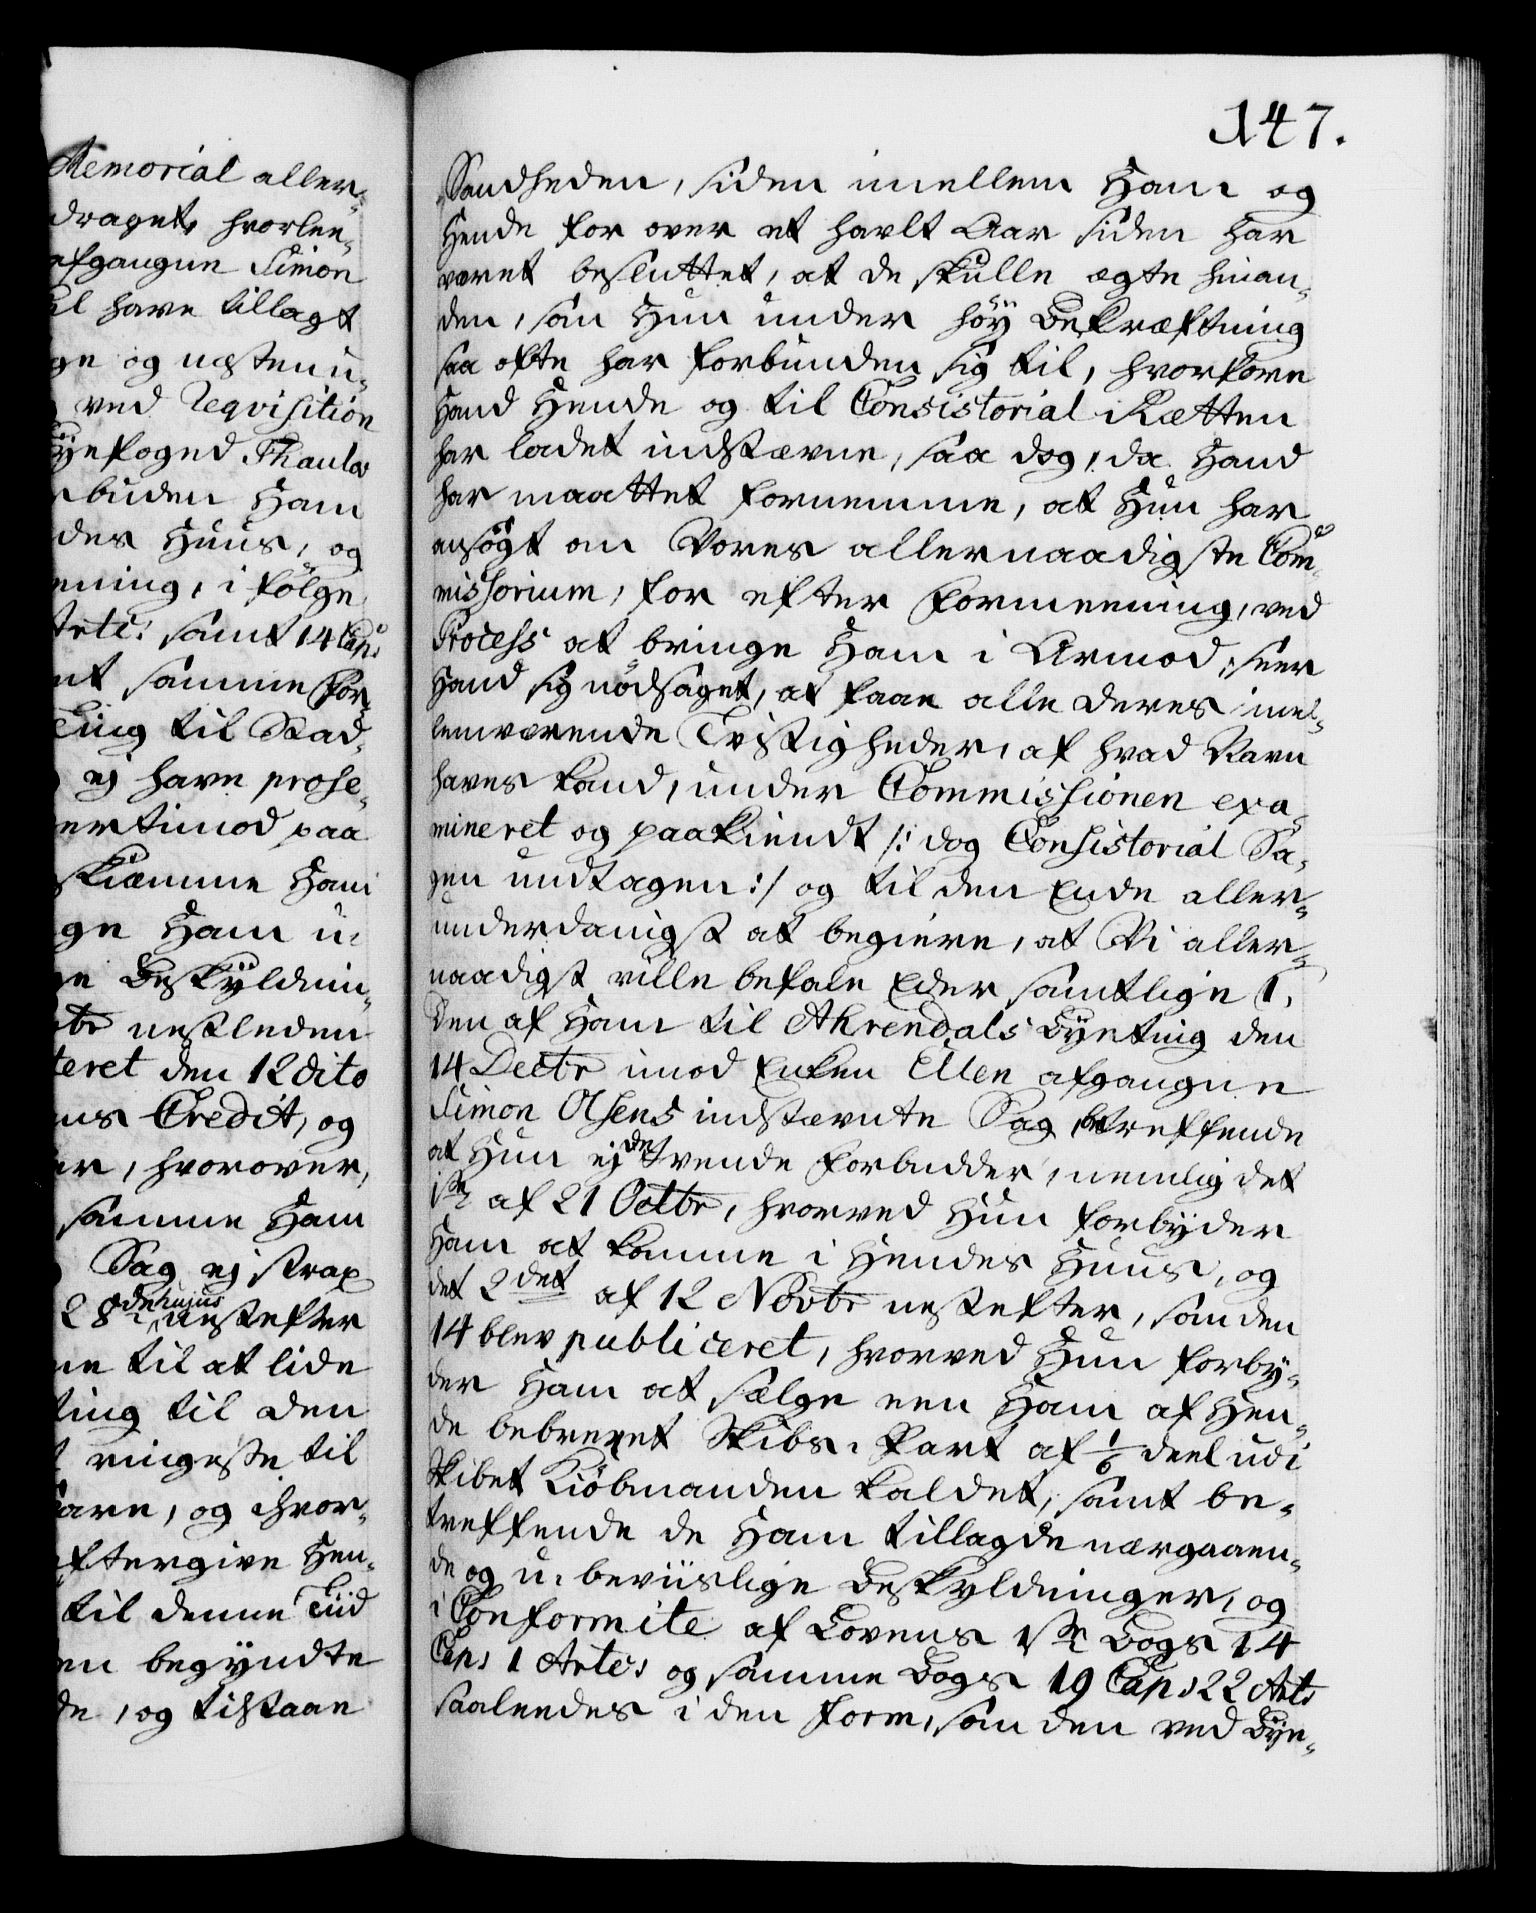 Memorial aller-
draget, hvorlen-
afgangne Simon
al have tillagt
ge og næsten u-
ved Reqvisition
byefoged Thaulow
buden Ham
des Huus, og
ening, i følge
Artl: samt 14 Cap:
nt samme For
Ting til Skad-
ej have prose-
ertimod paa
skiæmme Ham
ge Ham u-
ge Beskyldnin-
tbr nestleden
teret den 12 dito
ns Credit, og
er, hvorover,
samme Ham
Sag ej strax
28de hujus nestefter
ne til at lide
ting til den
ringeste til
vare, og hvor-
eftergive Hen-
til denne Tiid
en begyndte
de, og tilstaae
147.
Sandheden, siden imellem Ham og
Hende for over et halvt Aar siden har
været besluttet, at de skulle ægte hinan-
den, som Hun under høy Bekræftning
saa ofte har forbunden sig til, hvorfore
Hand Hende og til Consistorial Rætten
har ladet indstævne, saa dog, da Hand
har maattet fornemme, at Hun har
ansøgt om Vores allernaadigste Com-
missorium, for efter Formeening, ved
Process at bringe Ham i Armod, seer
Hand sig nødsaget, at faae alle deres imel-
lemværende Tvistigheder, af hvad Navn
haves kand, under Commissionen exa-
mineret og paakiendt /: dog Consistorial Sa-
gen undtagen :/ og til den Ende aller-
underdanigst at begiere, at Vi aller-
naadigst ville befale Eder samtlige 1,
Den af Ham til Ahrendals Byeting den
14 Decbr imod Enken Ellen afgangne
Simon Olsens indstævnte Sag, betreffende
at Hun ej de tvende Forbudder, nemlig det
1te af 21 Octbr, hvorved Hun forbyder
Ham at komme i Hendes Huus, og
det 2det af 12 Novbr nestefter, som den
14 blev publiceret, hvorved Hun forby-
der Ham at sælge een Ham af Hen-
de bebrevet Skibs-Part af 1/6 deel udi
Skibet Kiøbmanden kaldet, samt be-
treffende de Ham tillagde nærgaaen-
de og u-beviislige Beskyldninger, og
i Conformite af Lovens 1te Bogs 14
Cap: 1 Artl: og samme Bogs 19 Cap: 22 Artl:
saaledes i den Form, som den ved Bye-